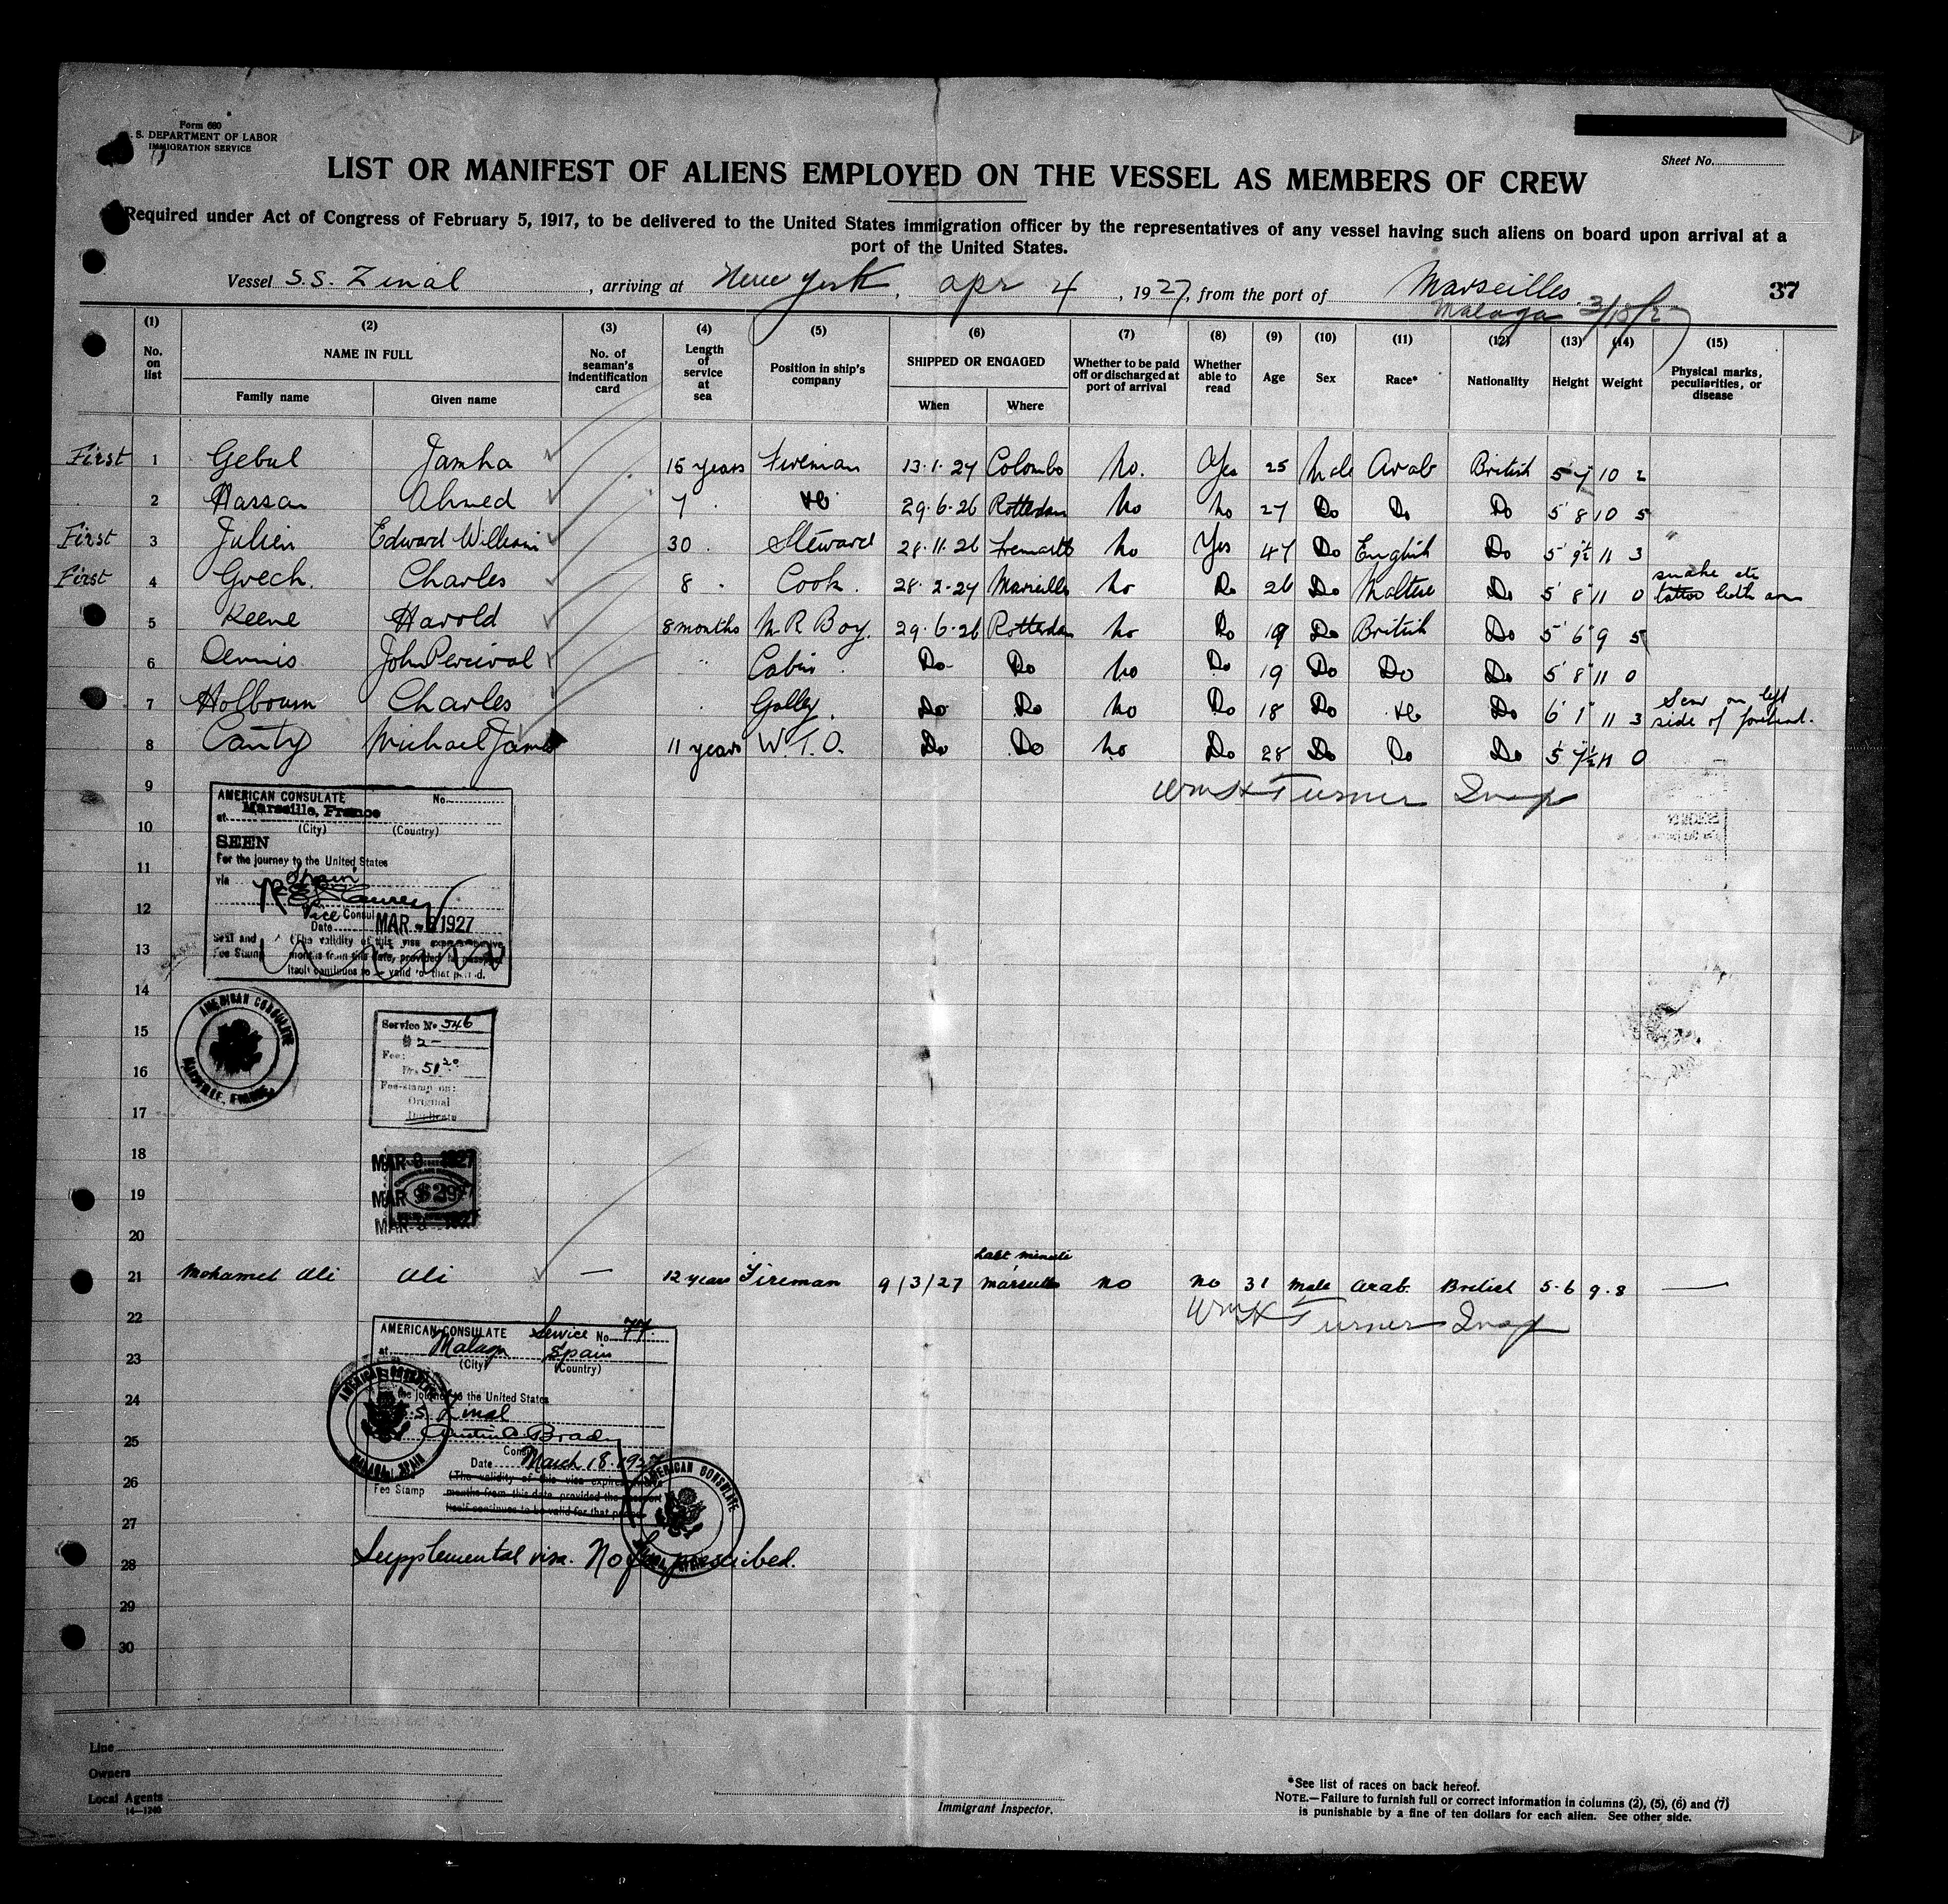 Form 680
S. DEPARTMENT OF LABOR
IMMIGRATION SERVICE
Sheet No.
LIST OR MANIFEST OF ALIENS EMPLOYED ON THE VESSEL AS MEMBERS OF CREW
Required under Act of Congress of February 5, 1917, to be delivered to the United States immigration officer by the representatives of any vessel having such aliens on board upon arrival at a
port of the United States.
Vessel S.S. Zinal, arriving at New York, Apr 4, 1927, from the port of Marseilles 37
Malaga 3/18/27
(1) (2) (3) (4) (5) (6) (7) (8) (9) (10) (11) (12) (13) (14) (15)
No. on list NAME IN FULL No. of seaman's indentification card Length of service at sea Position in ship's company SHIPPED OR ENGAGED Whether to be paid off or discharged at port of arrival Whether able to read Age Sex Race* Nationality Height Weight Physical marks, peculiarities, or disease
Family name Given name When Where
First 1 Gebul Jamha 15 years Fireman 13.1.27 Colombo No. Yes 25 Male Arab British 5 7 10 2
2 Hassan Ahmed 7 Do 29.6.26 Rotterdam No No 27 Do Do Do 5' 8 10 5
First 3 Julien Edward William 30 Steward 28.11.26 Fremantle No Yes 47 Do English Do 5' 9½ 11 3 "
First 4 Grech. Charles 8 " Cook. 28.2.27 Marseille No Do 26 Do Maltese Do 5' 8" 11 0 snake etc tattoo both arm
5 Keene Harold 8 months M R Boy. 29.6.26 Rotterdam No Do 19 Do British Do 5' 6" 9 5
6 Dennis John Percival " Cabin Do Do No Do 19 Do Do Do 5' 8" 11 0
7 Holbourn Charles Galley. Do Do No Do 18 Do Do Do 6' 1" 11 3 Scar on left side of forehead.
8 Canty Michael James 11 years W.T.O. Do Do No Do 28 Do Do Do 5 7½ 11 0
9 Wm H Turner Insp
10
11
12
13
14
15
16
17
18
19
20
AMERICAN CONSULATE No.
at Marseille, France
(City) (Country)
SEEN
For the journey to the United States
via Spain
Vice Consul
Date MAR 9 1927
Seal and Fee Stamp
(The validity of this visa expires
months from this date, provided the passport
itself continues to be valid for that period.
AMERICAN CONSULATE
MARSEILLE, FRANCE
Service No 546
$ 2-
Fee:
Frs. 51.20
Fee-stamp on:
Original
Duplicate
MAR 9 1927
MAR 9 1927
MAR 9 1927
$2
Last minute
21 Mohamed Ali Ali — 12 years Fireman 9/3/27 Marseille No No 31 Male Arab. British 5-6 9-8 —
22 Wm H Turner Insp
23
24
25
26
27
28
29
30
AMERICAN CONSULATE Service No. 77.
at Malaga Spain
(City) (Country)
the journey to the United States
S.S. Zinal
Brady
Consul
Date March 18. 1927
(The validity of this visa expires
months from this date, provided the passport
itself continues to be valid for that period
Fee Stamp
AMERICAN CONSULATE
MALAGA, SPAIN
AMERICAN CONSULATE
Supplemental visa. No fee prescribed.
Line
Owners
Local Agents
14—1240
Immigrant Inspector.
*See list of races on back hereof.
NOTE.—Failure to furnish full or correct information in columns (2), (5), (6) and (7)
is punishable by a fine of ten dollars for each alien. See other side.